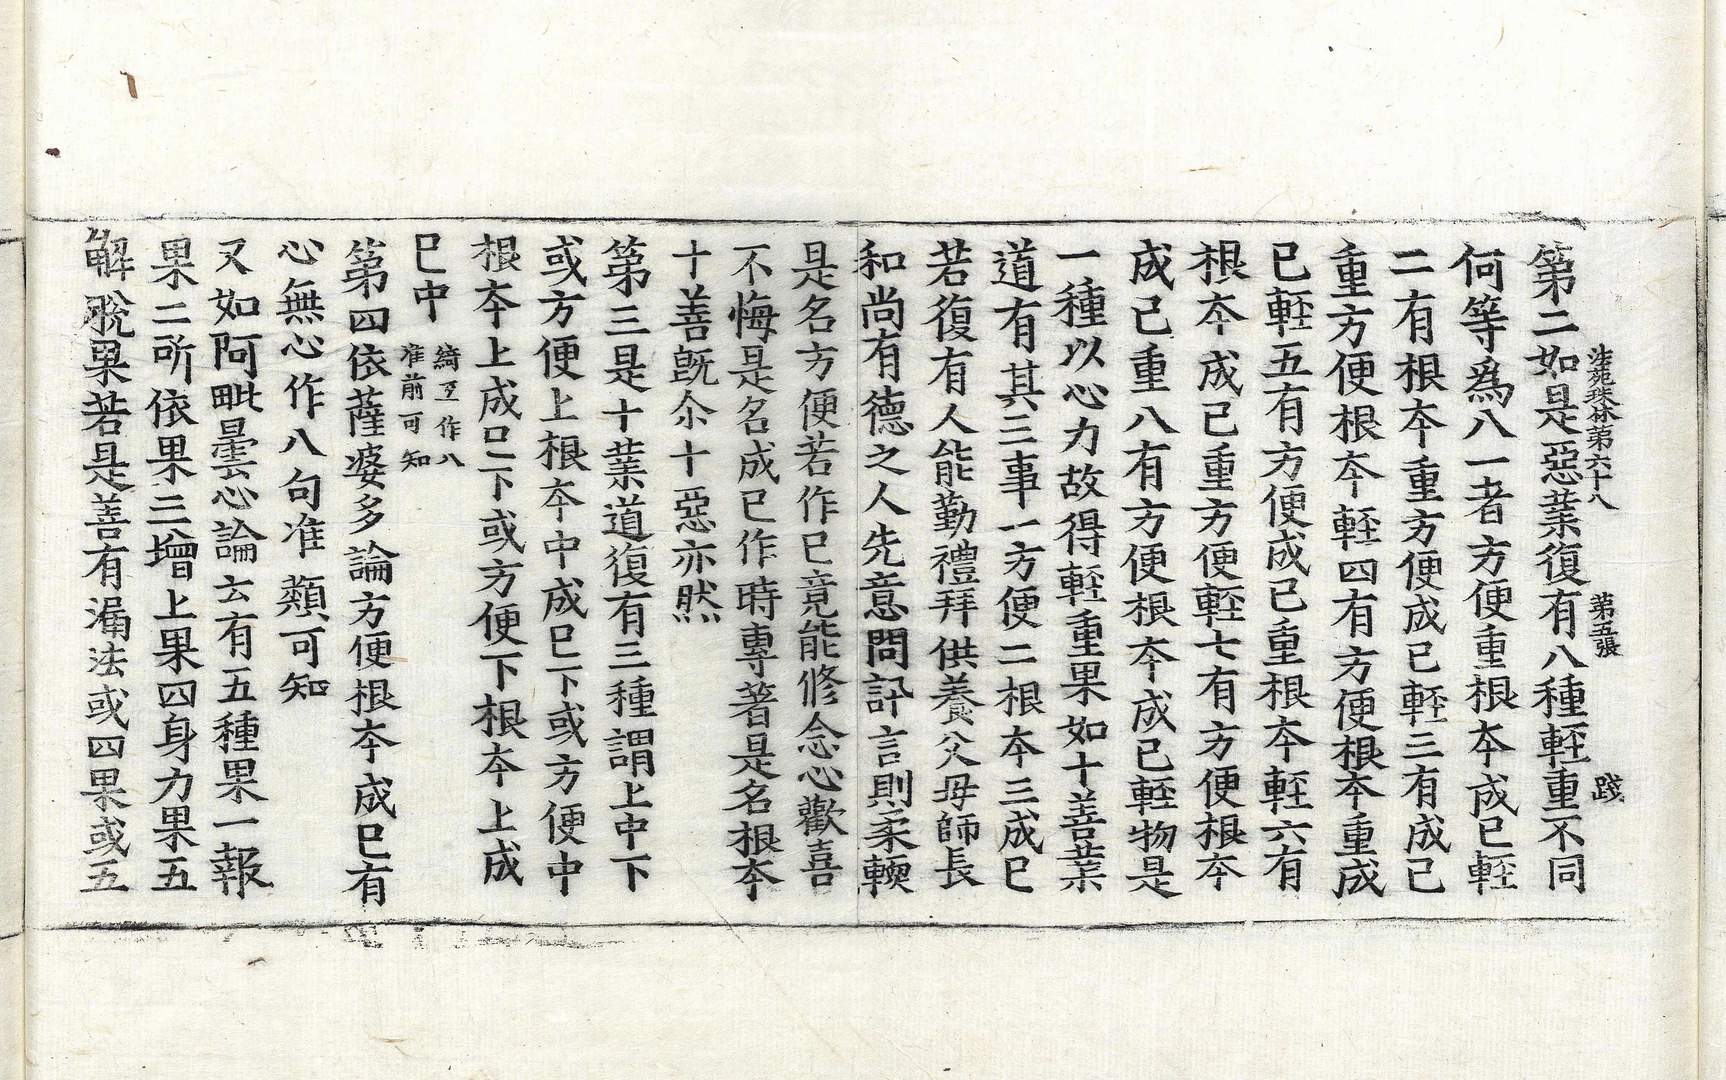 法苑珠林第六十八 第五張 踐
第二如是惡業復有八種輕重不同
何等爲八一者方便重根本成已輕
二有根本重方便成已輕三有成已
重方便根本輕四有方便根本重成
已輕五有方便成已重根本輕六有
根本成已重方便輕七有方便根本
成已重八有方便根本成已輕物是
一種以心力故得輕重果如十善業
道有其三事一方便二根本三成已
若復有人能勤禮拜供養父母師長
和尚有德之人先意問訊言則柔輭
是名方便若作已竟能修念心歡喜
不悔是名成已作時專著是名根本
十善旣尒十惡亦然
第三是十業道復有三種謂上中下
或方便上根本中成已下或方便中
根本上成已下或方便下根本上成
已中
綺互作八
准前可知
第四依薩婆多論方便根本成已有
心無心作八句准類可知
又如阿毗曇心論云有五種果一報
果二所依果三增上果四身力果五
解脫果若是善有漏法或四果或五